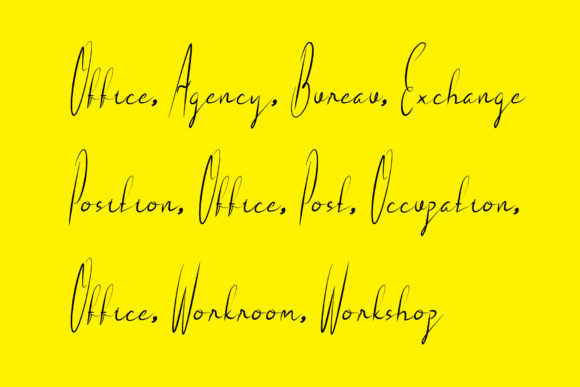 Office, Agency, Bureau, Exchange
Position, Office, Post, Occupation,
Office, Workroom, Workshop